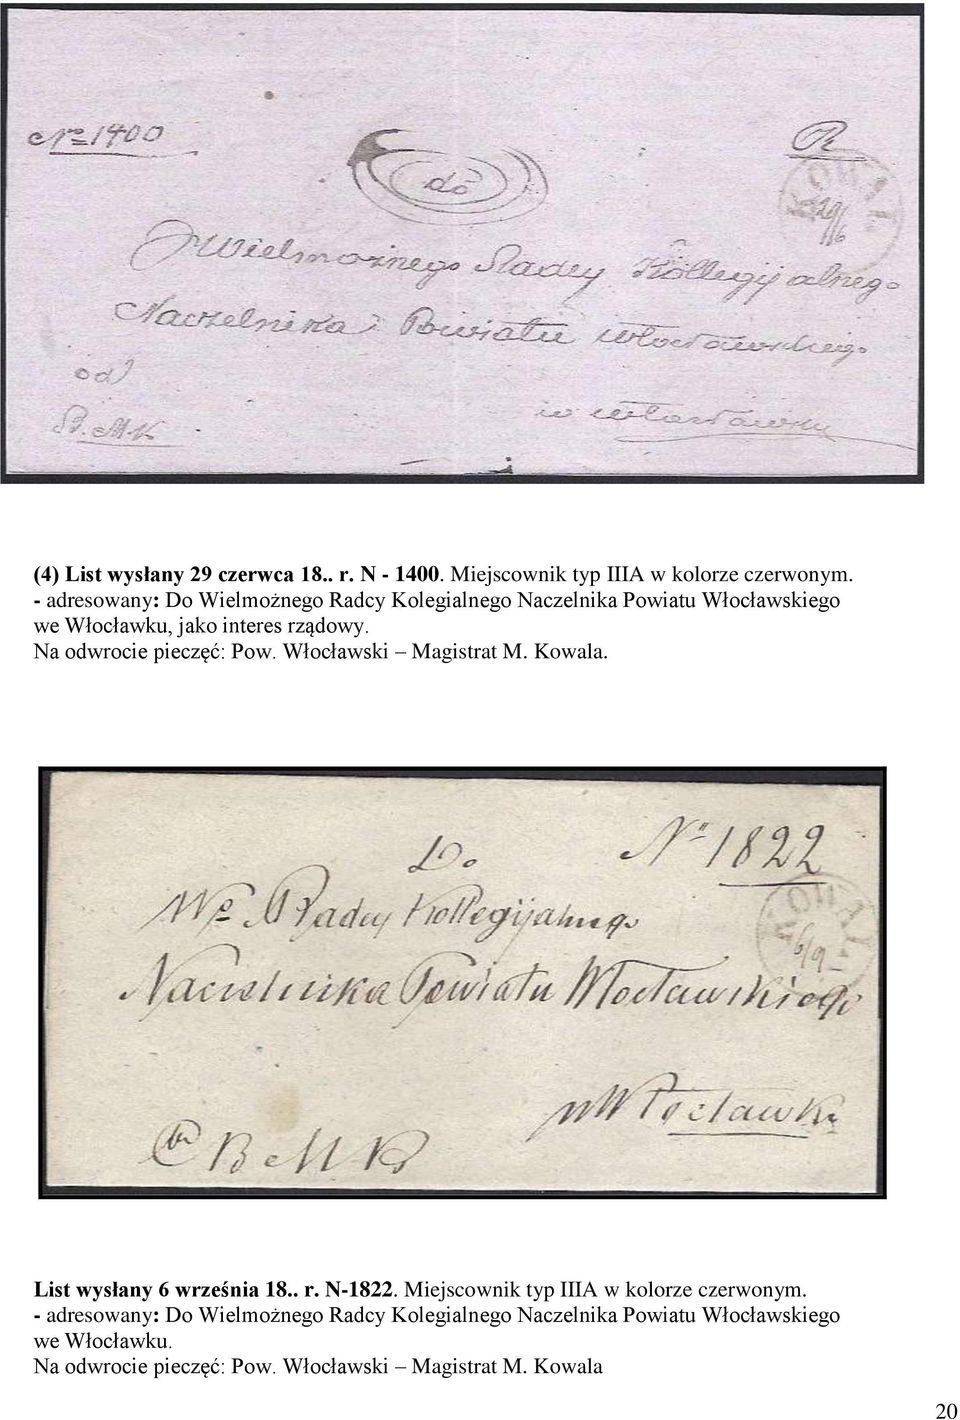 № 1400
do
R
KOWAL
29/6
JWielmożnego Radcy Kollegijalnego
Naczelnika Powiatu włocławskiego
od
w włocławku
B. M K.
(4) List wysłany 29 czerwca 18.. r. N - 1400. Miejscownik typ IIIA w kolorze czerwonym.
- adresowany: Do Wielmożnego Radcy Kolegialnego Naczelnika Powiatu Włocławskiego
we Włocławku, jako interes rządowy.
Na odwrocie pieczęć: Pow. Włocławski – Magistrat M. Kowala.
Do
N" 1822
KOWAL
6/9
Wo Radcy Kollegijalnego
Naczelnika Powiatu Włocławskiego
w Włocławku
B M K
List wysłany 6 września 18.. r. N-1822. Miejscownik typ IIIA w kolorze czerwonym.
- adresowany: Do Wielmożnego Radcy Kolegialnego Naczelnika Powiatu Włocławskiego
we Włocławku.
Na odwrocie pieczęć: Pow. Włocławski – Magistrat M. Kowala
20